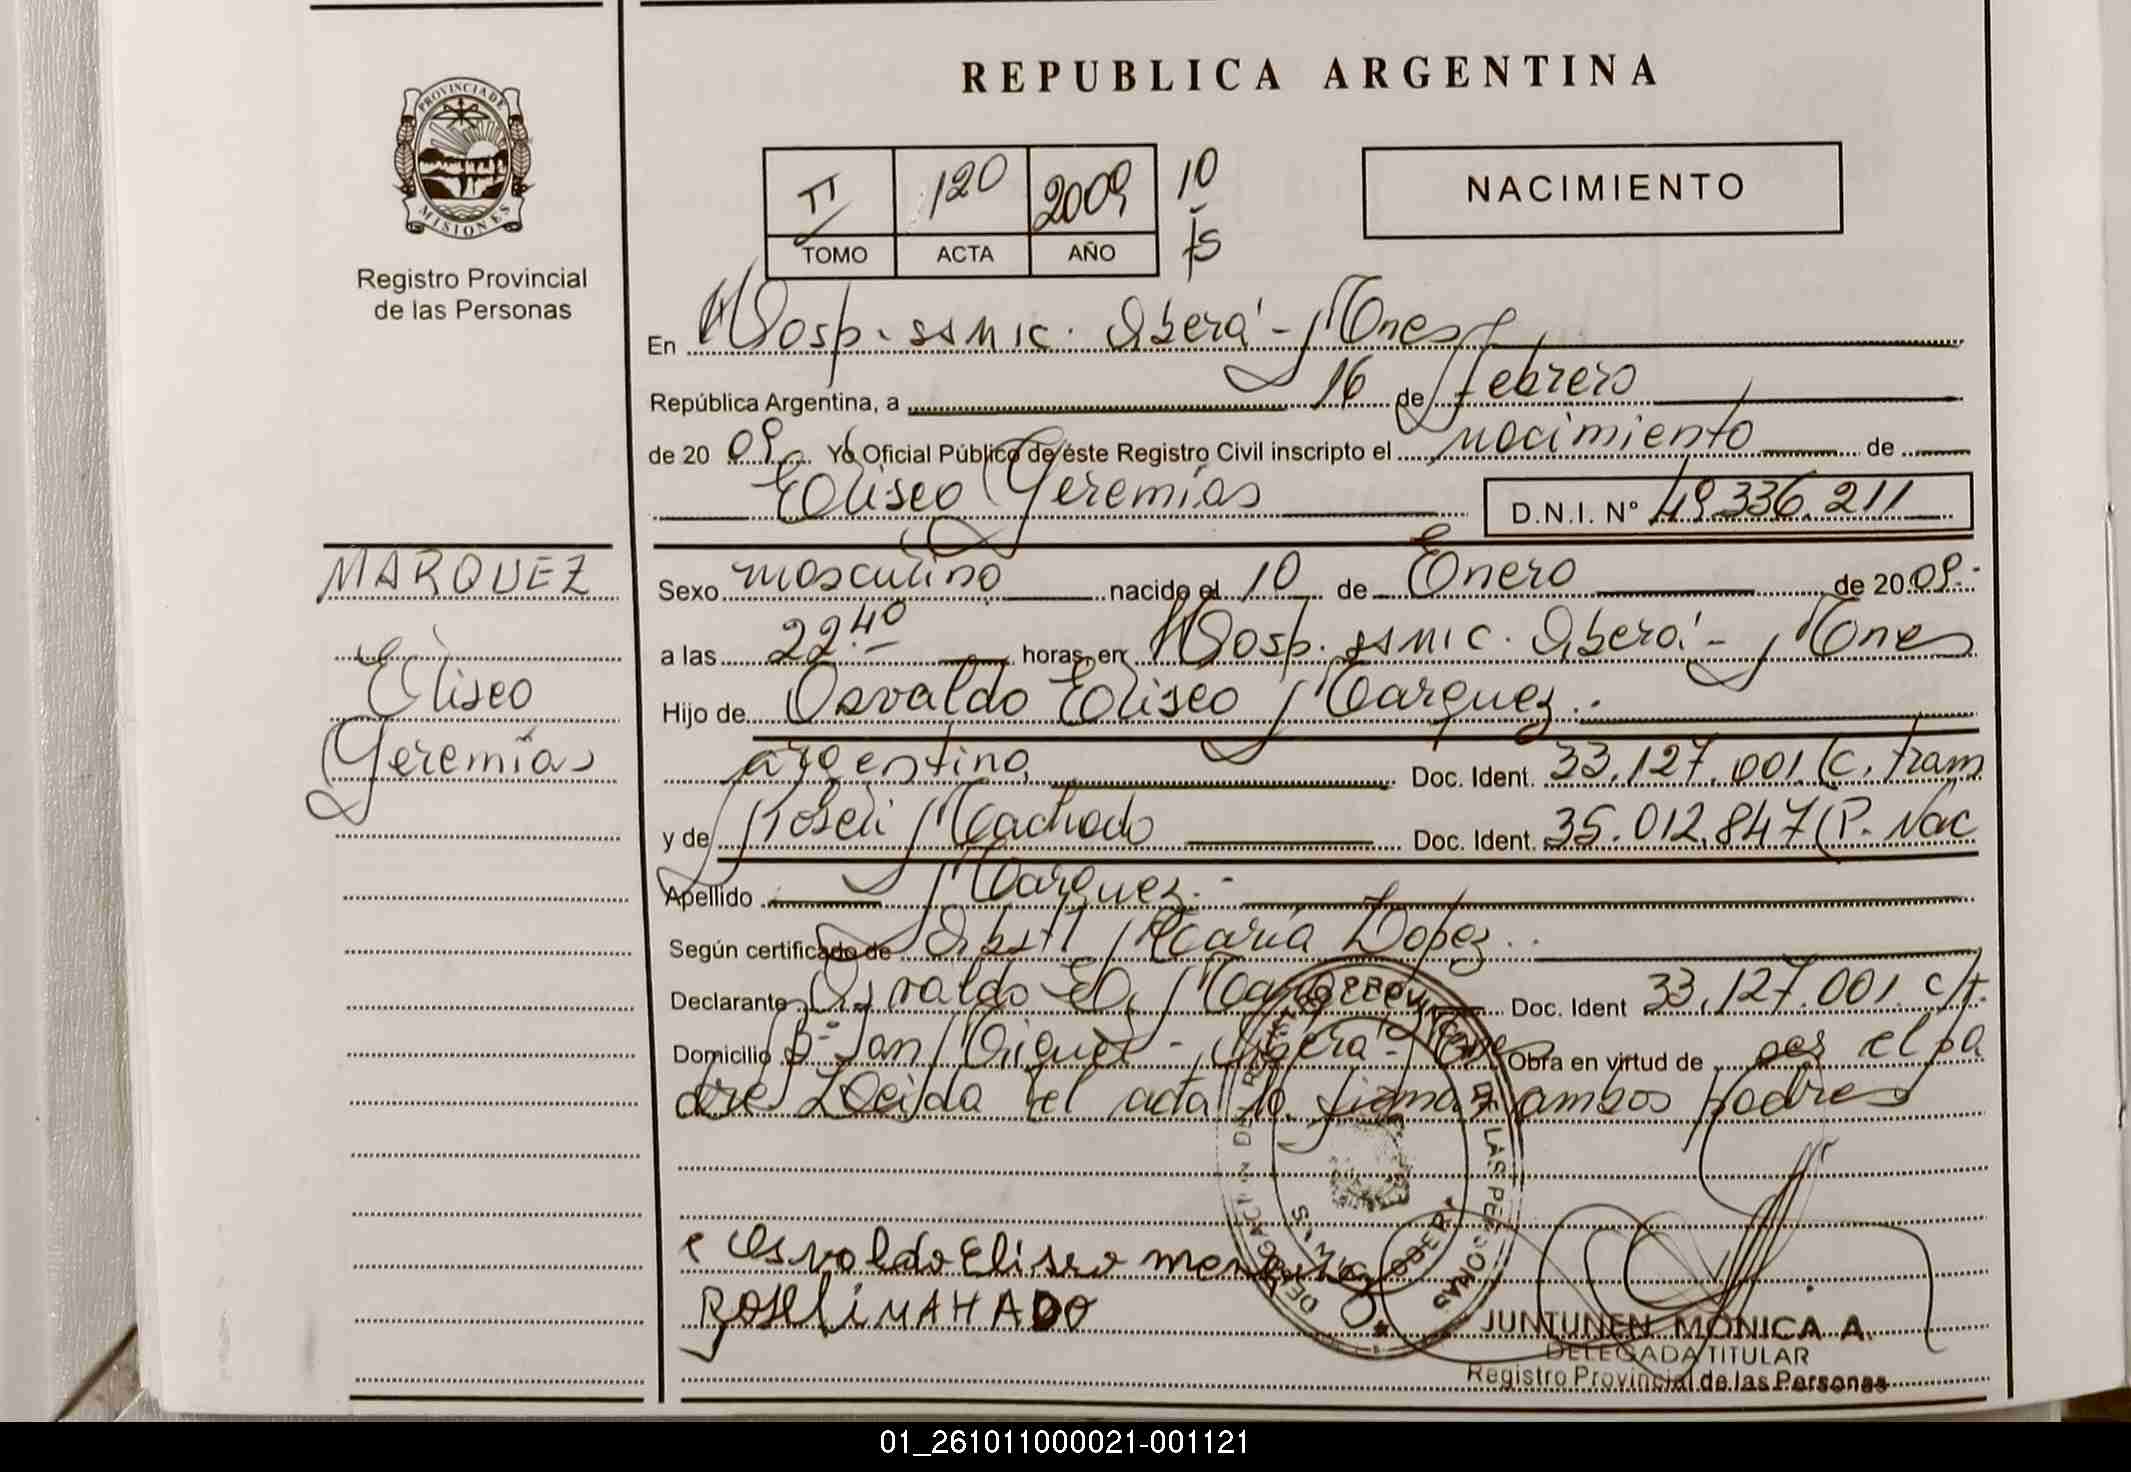 REPUBLICA ARGENTINA
PROVINCIA DE
MISIONES
Registro Provincial
de las Personas
II 120 2009 10
TOMO ACTA AÑO
NACIMIENTO
En Hosp. SAMIC. Oberá - Mnes
República Argentina, a 16 de febrero
de 20 09 Yo Oficial Público de éste Registro Civil inscripto el nacimiento de
Eliseo Geremías D.N.I. N° 49.336.211
MARQUEZ
Eliseo
Geremías
Sexo masculino nacido el 10 de Enero de 20 09.-
a las 22:40 horas, en Hosp. SAMIC. Oberá - Mnes
Hijo de Osvaldo Eliseo Marquez.-
argentino Doc. Ident. 33.127.001 (C. tram
y de Roseli Machado Doc. Ident. 35.012.847 (P. Nac
Apellido Marquez.-
Según certificado de María Lopez.-
Declarante Osvaldo El. Marquez Doc. Ident 33.127.001 c/t.
Domicilio B° San Miguel - Oberá - Mnes Obra en virtud de ser el pa
dre Leída el acta la firman ambos padres
Osvaldo Eliseo
ROSELi MAHADO
DE LAS PERSONAS
JUNTUNEN MONICA A.
DELEGADA TITULAR
Registro Provincial de las Personas
01_261011000021-001121